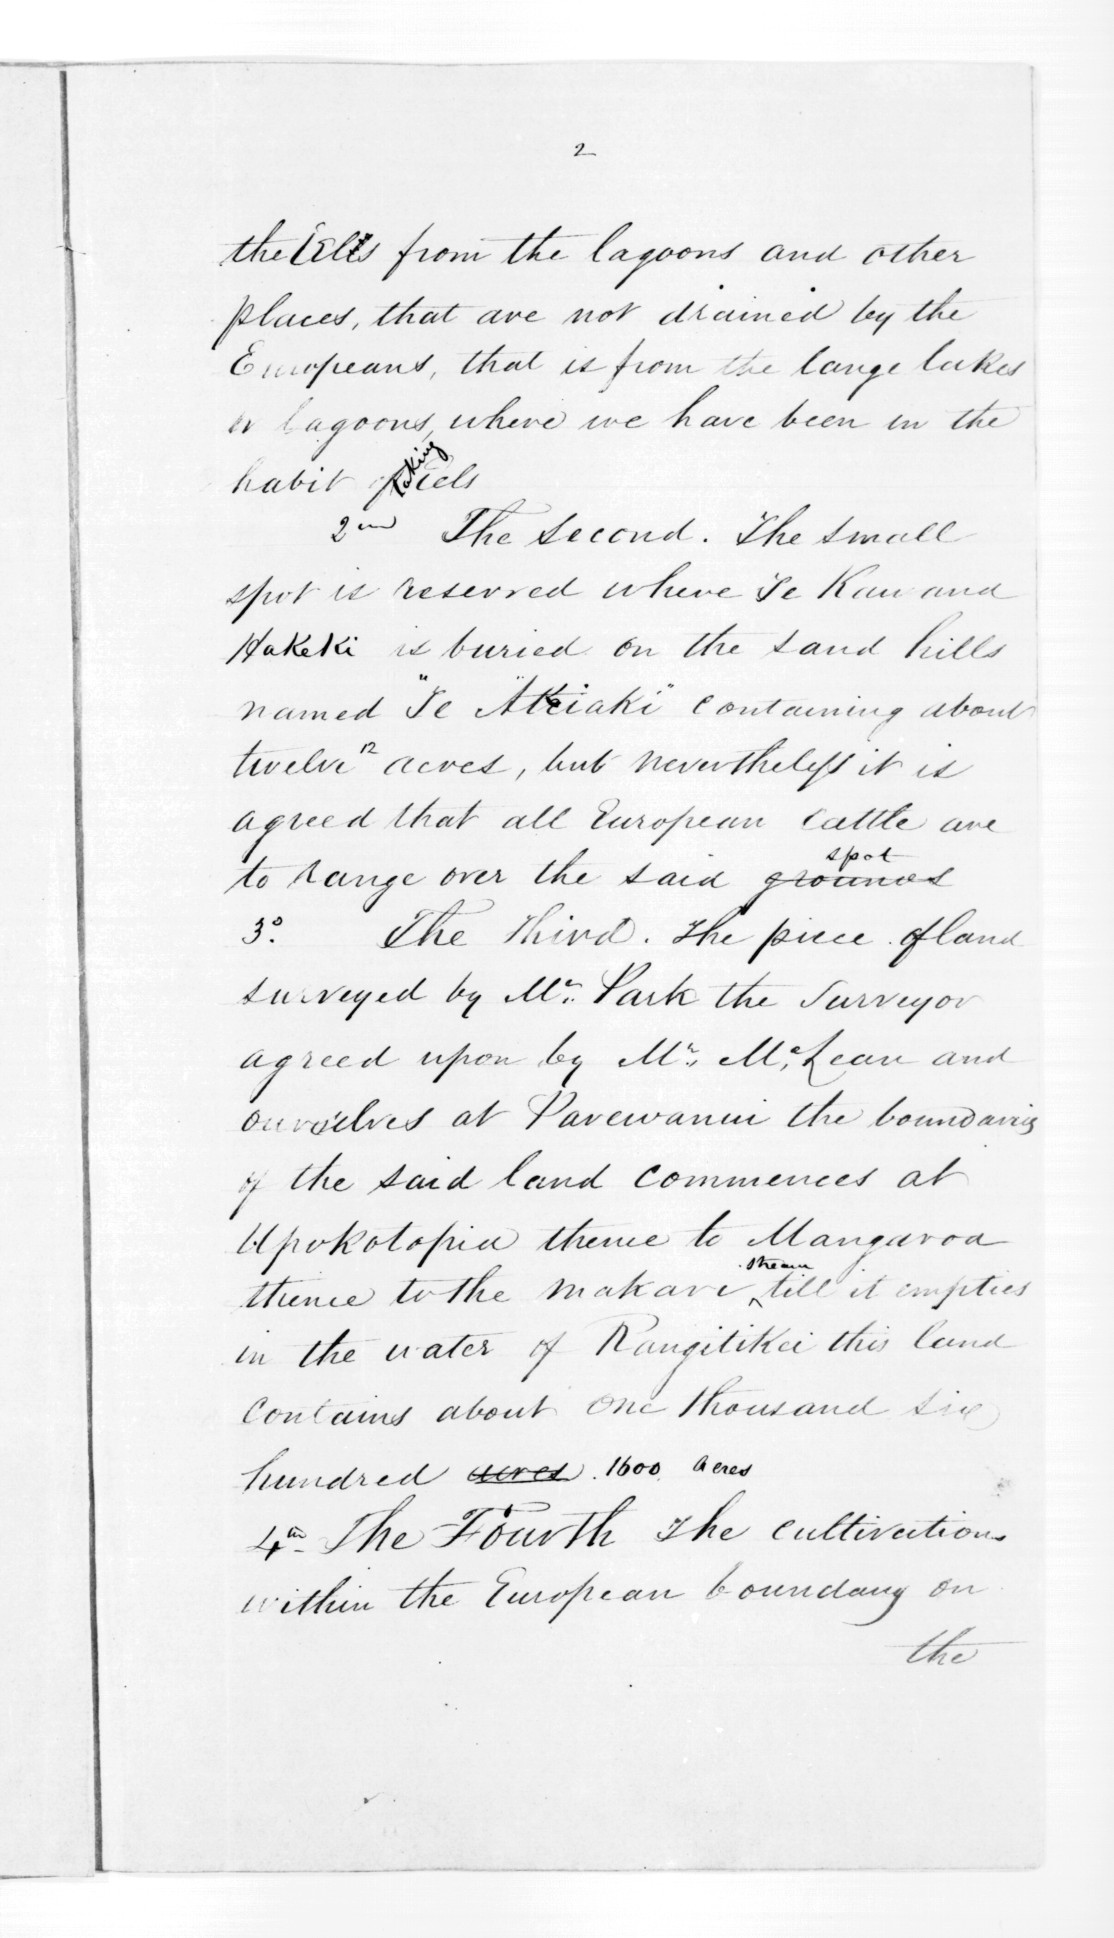 2
the Eels from the lagoons and other
places, that are not drained by the
Europeans, that is from the large lakes
or lagoons, where we have been in the
habit of taking eels
2nd The Second. The small
spot is reserved where Te Kau and
Hakeki is buried on the sand hills
named "Te "Akeiaki" containing about
twelve 12 acres, but nevertheless it is
agreed that all European cattle are
to range over the said grounds spot
3o. The Third. The piece of land
surveyed by Mr. Park the Surveyor
agreed upon by Mr. McLean and
ourselves at Parewanui the boundaries
of the said land commences at
Upokotopia thence to Mangaroa
thence to the Makari stream till it empties
in the water of Rangitikei this land
contains about One thousand six
hundred acres. 1600 Acres
4th The Fourth The cultivations
within the European boundary on
the